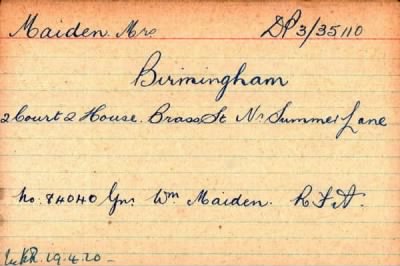 Maiden. Mrs DP3/35110
Birmingham
2 Court 2 House. Brass St Nr Summer Lane
No. 84040 Gnr Wm Maiden. R.F.A.
19.4.20